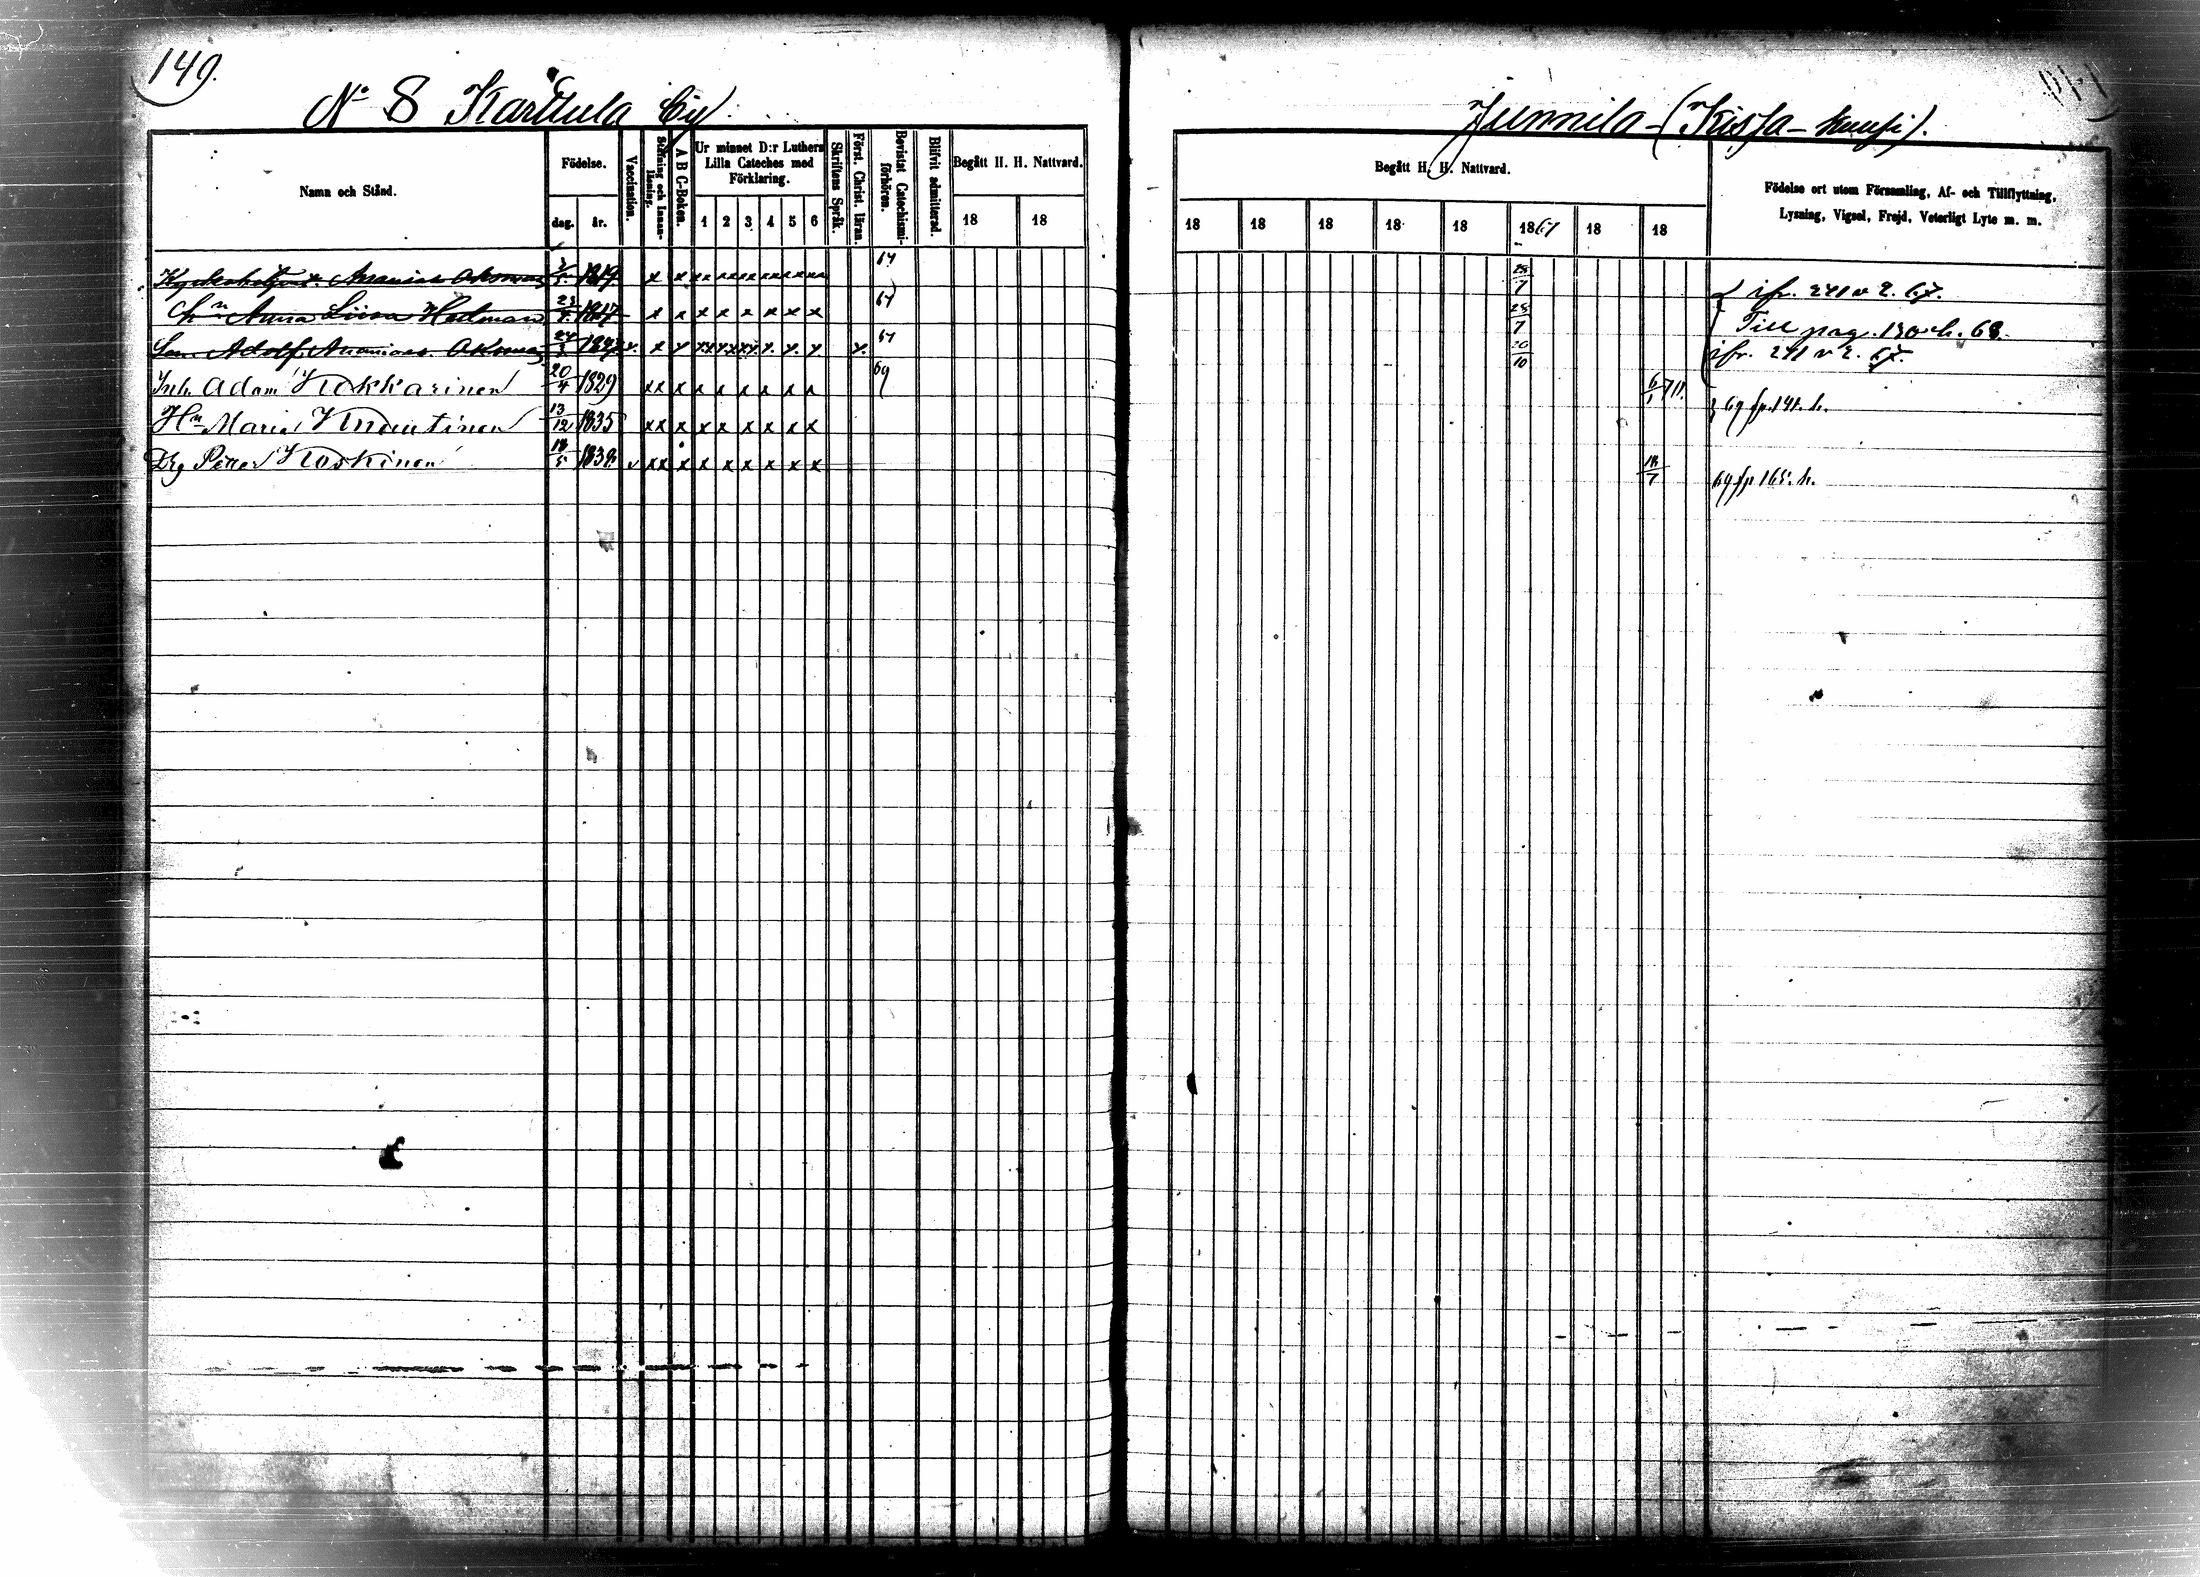 149.
N:o 8 Karttula by.
Junnila - (Kissa-kuusi).
Namn och Stånd.
Födelse.
dag. år.
Vaccination.
Stafning och Innanläsning.
A B C-Boken.
Ur minnet D:r Luthers Lilla Cateches med Förklaring.
1 2 3 4 5 6
Skriftens Språk.
Först. Christ. läran.
Bevistat Catechismiförhören.
Blifvit admitterad.
Begått H. H. Nattvard.
18 18
Begått H. H. Nattvard.
18 18 18 18 18 1867 18 18
Födelse ort utom Församling, Af- och Tillflyttning,
Lysning, Vigsel, Frejd, Veterligt Lyte m. m.
Ananias 1819 x x x x x x x x 25/7 ifr. 241 v 2. 67.
Anna Liisa Hedman 23/7 1817 x x x x x x x x 67 25/7 Till pag. 130 h. 68.
Son Adolf Ananias 24/3 1847 v. x x 67 20/10 ifr. 241 v 2. 67.
Inh. Adam Kokkarinen 20/4 1829 x x x x x x x x x 69 6/1 71. 69 fr p. 141. h.
H:u Maria Knuutinen 13/12 1835 x x x x x x x x x
Drg Petter Koskinen 18/5 1838 v x x x x x x x x x 18/7 69 fr p 165. h.